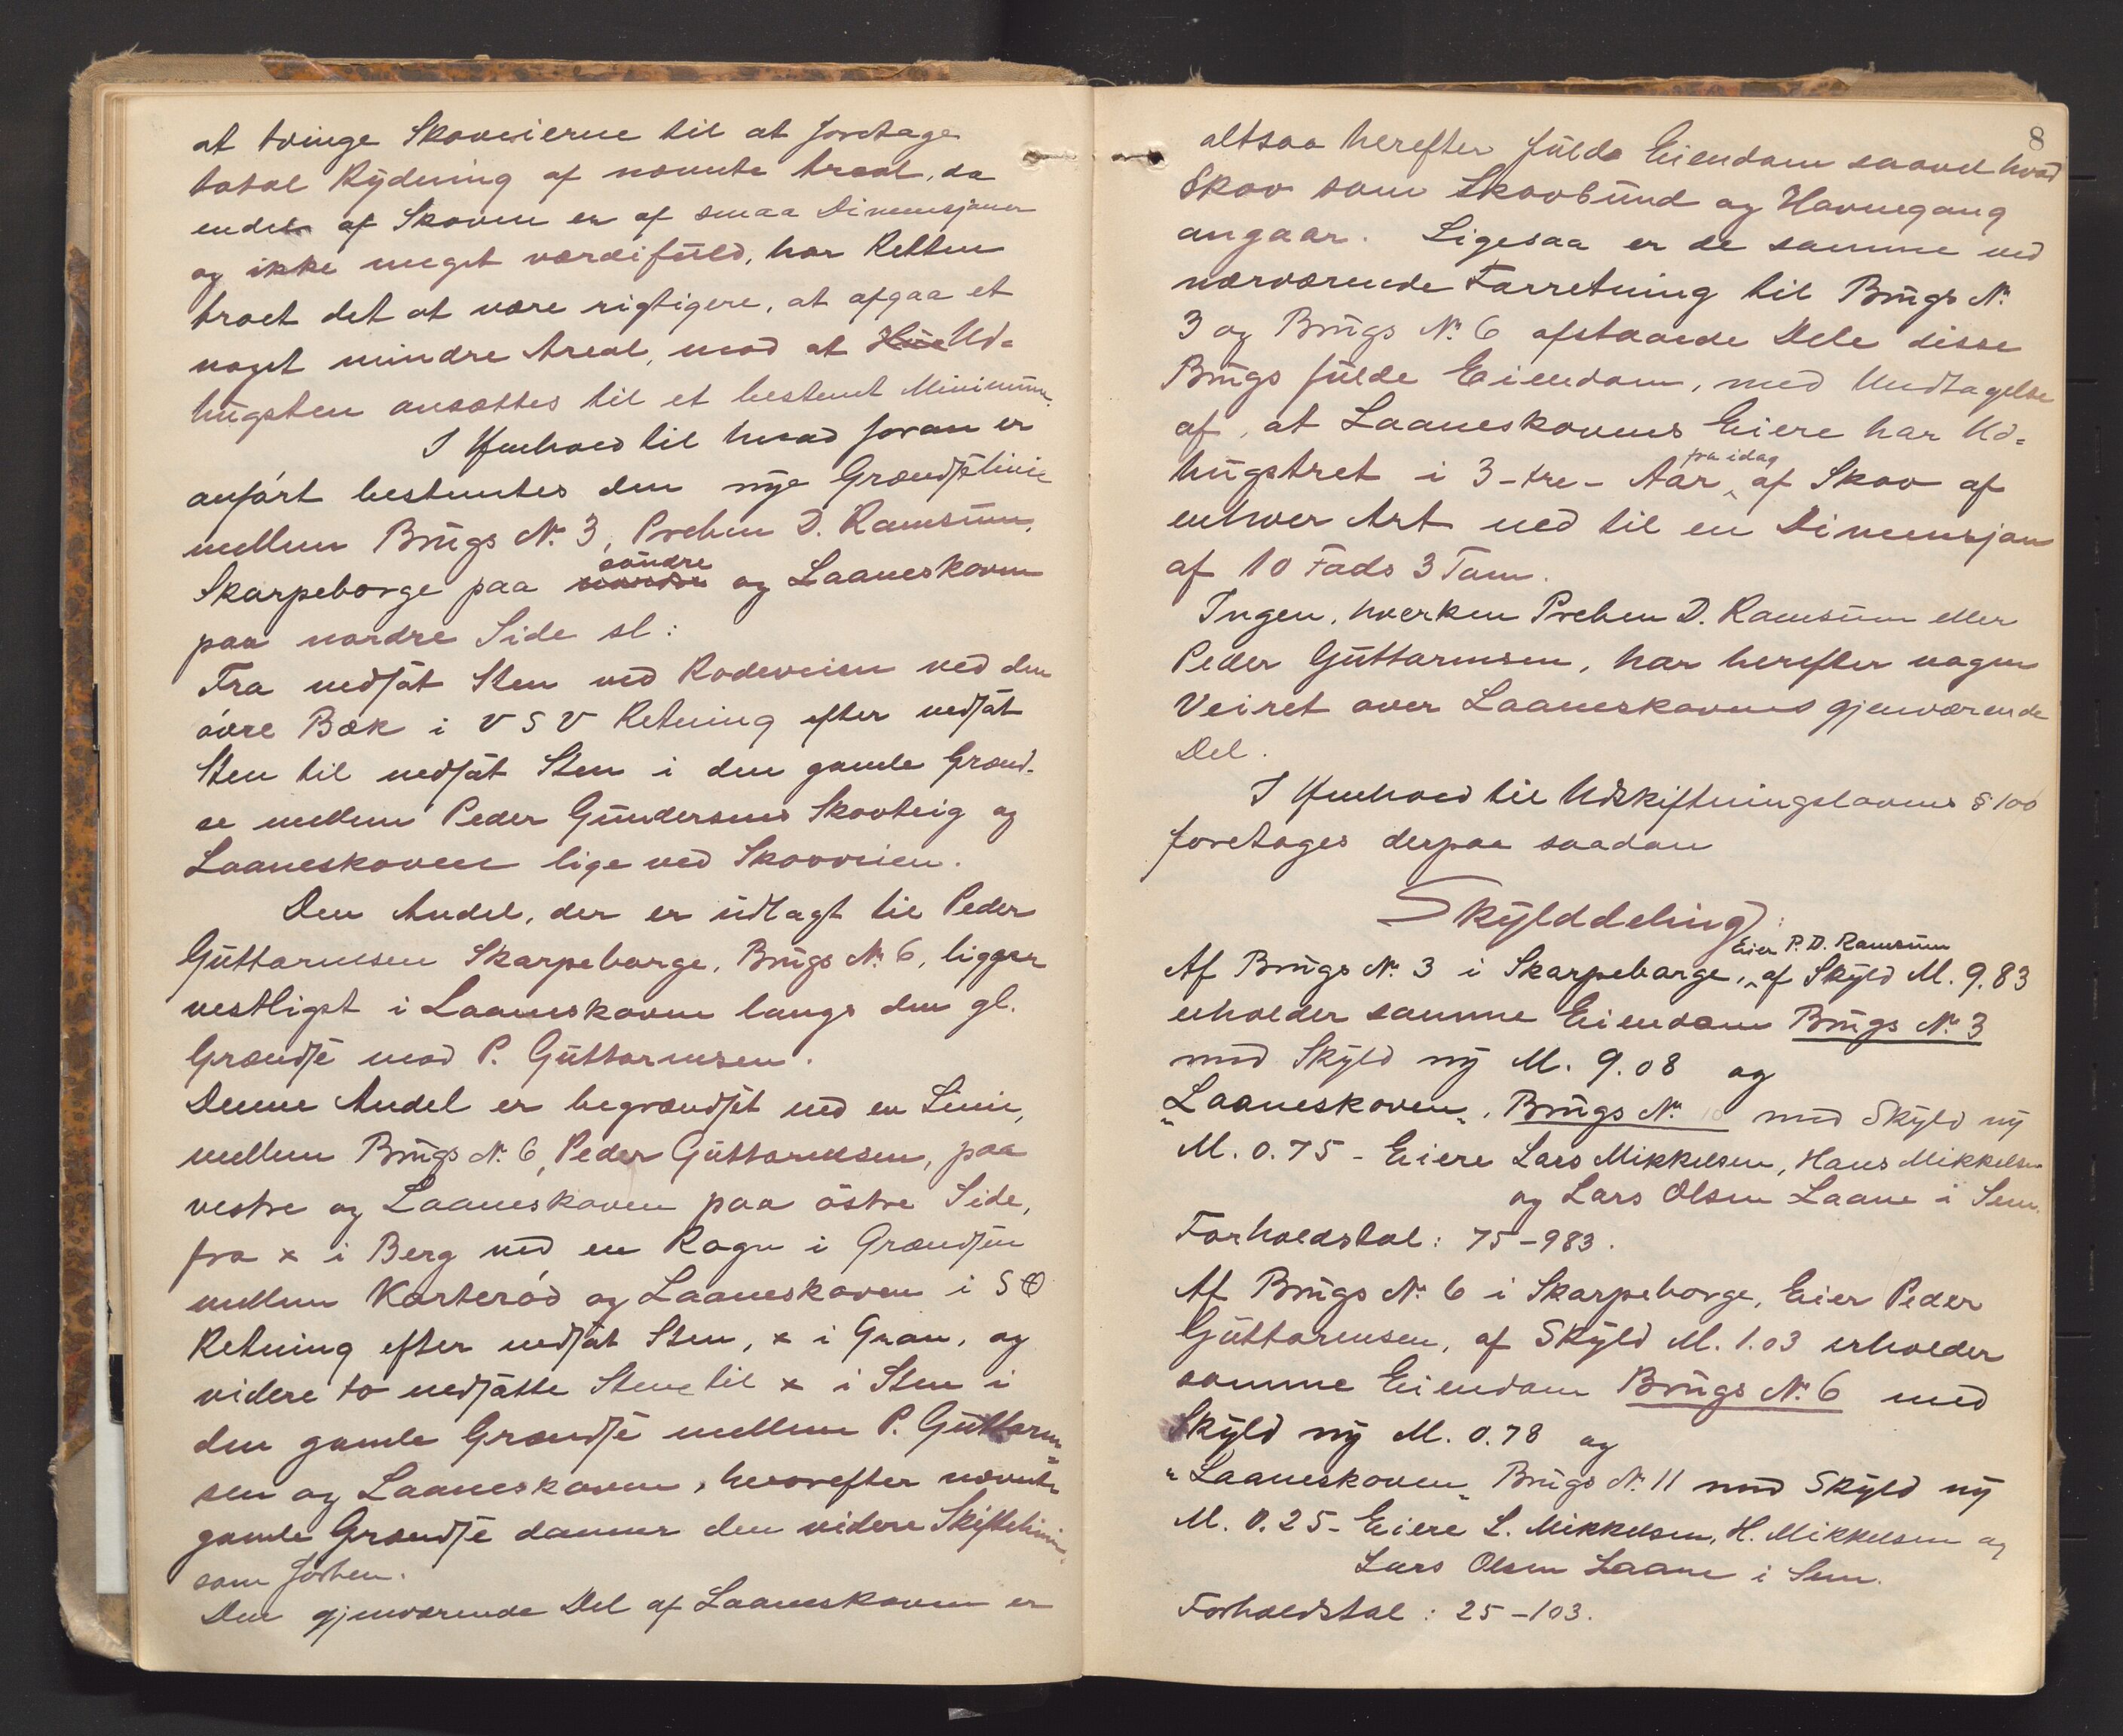 at tvinge Skoveierne til at foretage
total Rydning af nævnte Areal, da
endel af Skoven er af smaa Dimensjoner
og ikke meget værdifuld, har Retten
troet det at være rigtigere, at afgaa et
noget mindre Areal, mod at Hue Ud-
hugsten ansættes til et bestemt Minimum.
I Henhold til hvad foran er
anført bestemtes den nye Grændselinie
mellem Brugs No. 3, Preben D. Ramsum,
søndre
Skarpeborge paa nordre og Laaneskoven
paa nordre Side sl:
Fra nedsat Sten ved Rodeveien ved den
øvre Bæk i V S V Retning efter nedsat
Sten til nedsat Sten i den gamle Grænd-
se mellem Peder Gundersens Skovteig og
Laaneskoven lige ved Skovveien.
Den Andel, der er udlagt til Peder
Guttormsen Skarpeborge, Brugs No. 6, ligger
vestligst i Laaneskoven langs den gl.
Grændse mod P. Guttormsen.
Denne Andel er begrændset ved en Linie,
mellem Brugs No. 6, Peder Guttormsen, paa
vestre og Laaneskoven paa østre Side,
fra x i Berg ved en Rogn i Grændsen
mellem Korterød og Laaneskoven i S Ø
Retning efter nedsat Sten, x i Gran, og
videre to nedsatte Stene til x i Sten i
den gamle Grændse mellem P. Guttorm-
sen og Laaneskoven, hvorefter nævnte
gamle Grændse danner den videre Skiftelinie
som forhen.
Den gjenværende Del af Laaneskoven er
8
altsaa herefter fulde Eiendom saavel hvad
Skov som Skovbund og Havnegang
angaar. Ligesaa er de samme ved
nærværende Forretning til Brugs No.
3 og Brugs No. 6 afstaaede Dele disse
Brugs fulde Eiendom, med Undtagelse
af, at Laaneskovens Eiere har Ud-
fra idag
hugstret i 3-tre- Aar af Skov af
enhver Art ned til en Dimensjon
af 10 Fods 3 Tom.
Ingen, hverken Preben D. Ramsum eller
Peder Guttormsen, har herefter nogen
Veiret over Laaneskovens gjenværende
Del.
I Henhold til Udskiftningslovens § 100
foretages derpaa saadan
Skylddeling:
Eier P. D. Ramsum
Af Brugs No. 3 i Skarpeborge, af Skyld M. 9.83
erholder samme Eiendom Brugs No. 3
med Skyld ny M. 9.08 og
"Laaneskoven", Brugs No. 10 med Skyld ny
M. 0.75 - Eiere Lars Mikkelsen, Hans Mikkelsen
og Lars Olsen Laane i Sem.
Forholdstal: 75-983.
Af Brugs No. 6 i Skarpeborge, Eier Peder
Guttormsen, af Skyld M. 1.03 erholder
samme Eiendom Brugs No. 6 med
Skyld ny M. 0.78 og
"Laaneskoven" Brugs No. 11 med Skyld ny
M. 0.25 - Eiere L. Mikkelsen, H. Mikkelsen og
Lars Olsen Laane i Sem.
Forholdstal: 25-103.